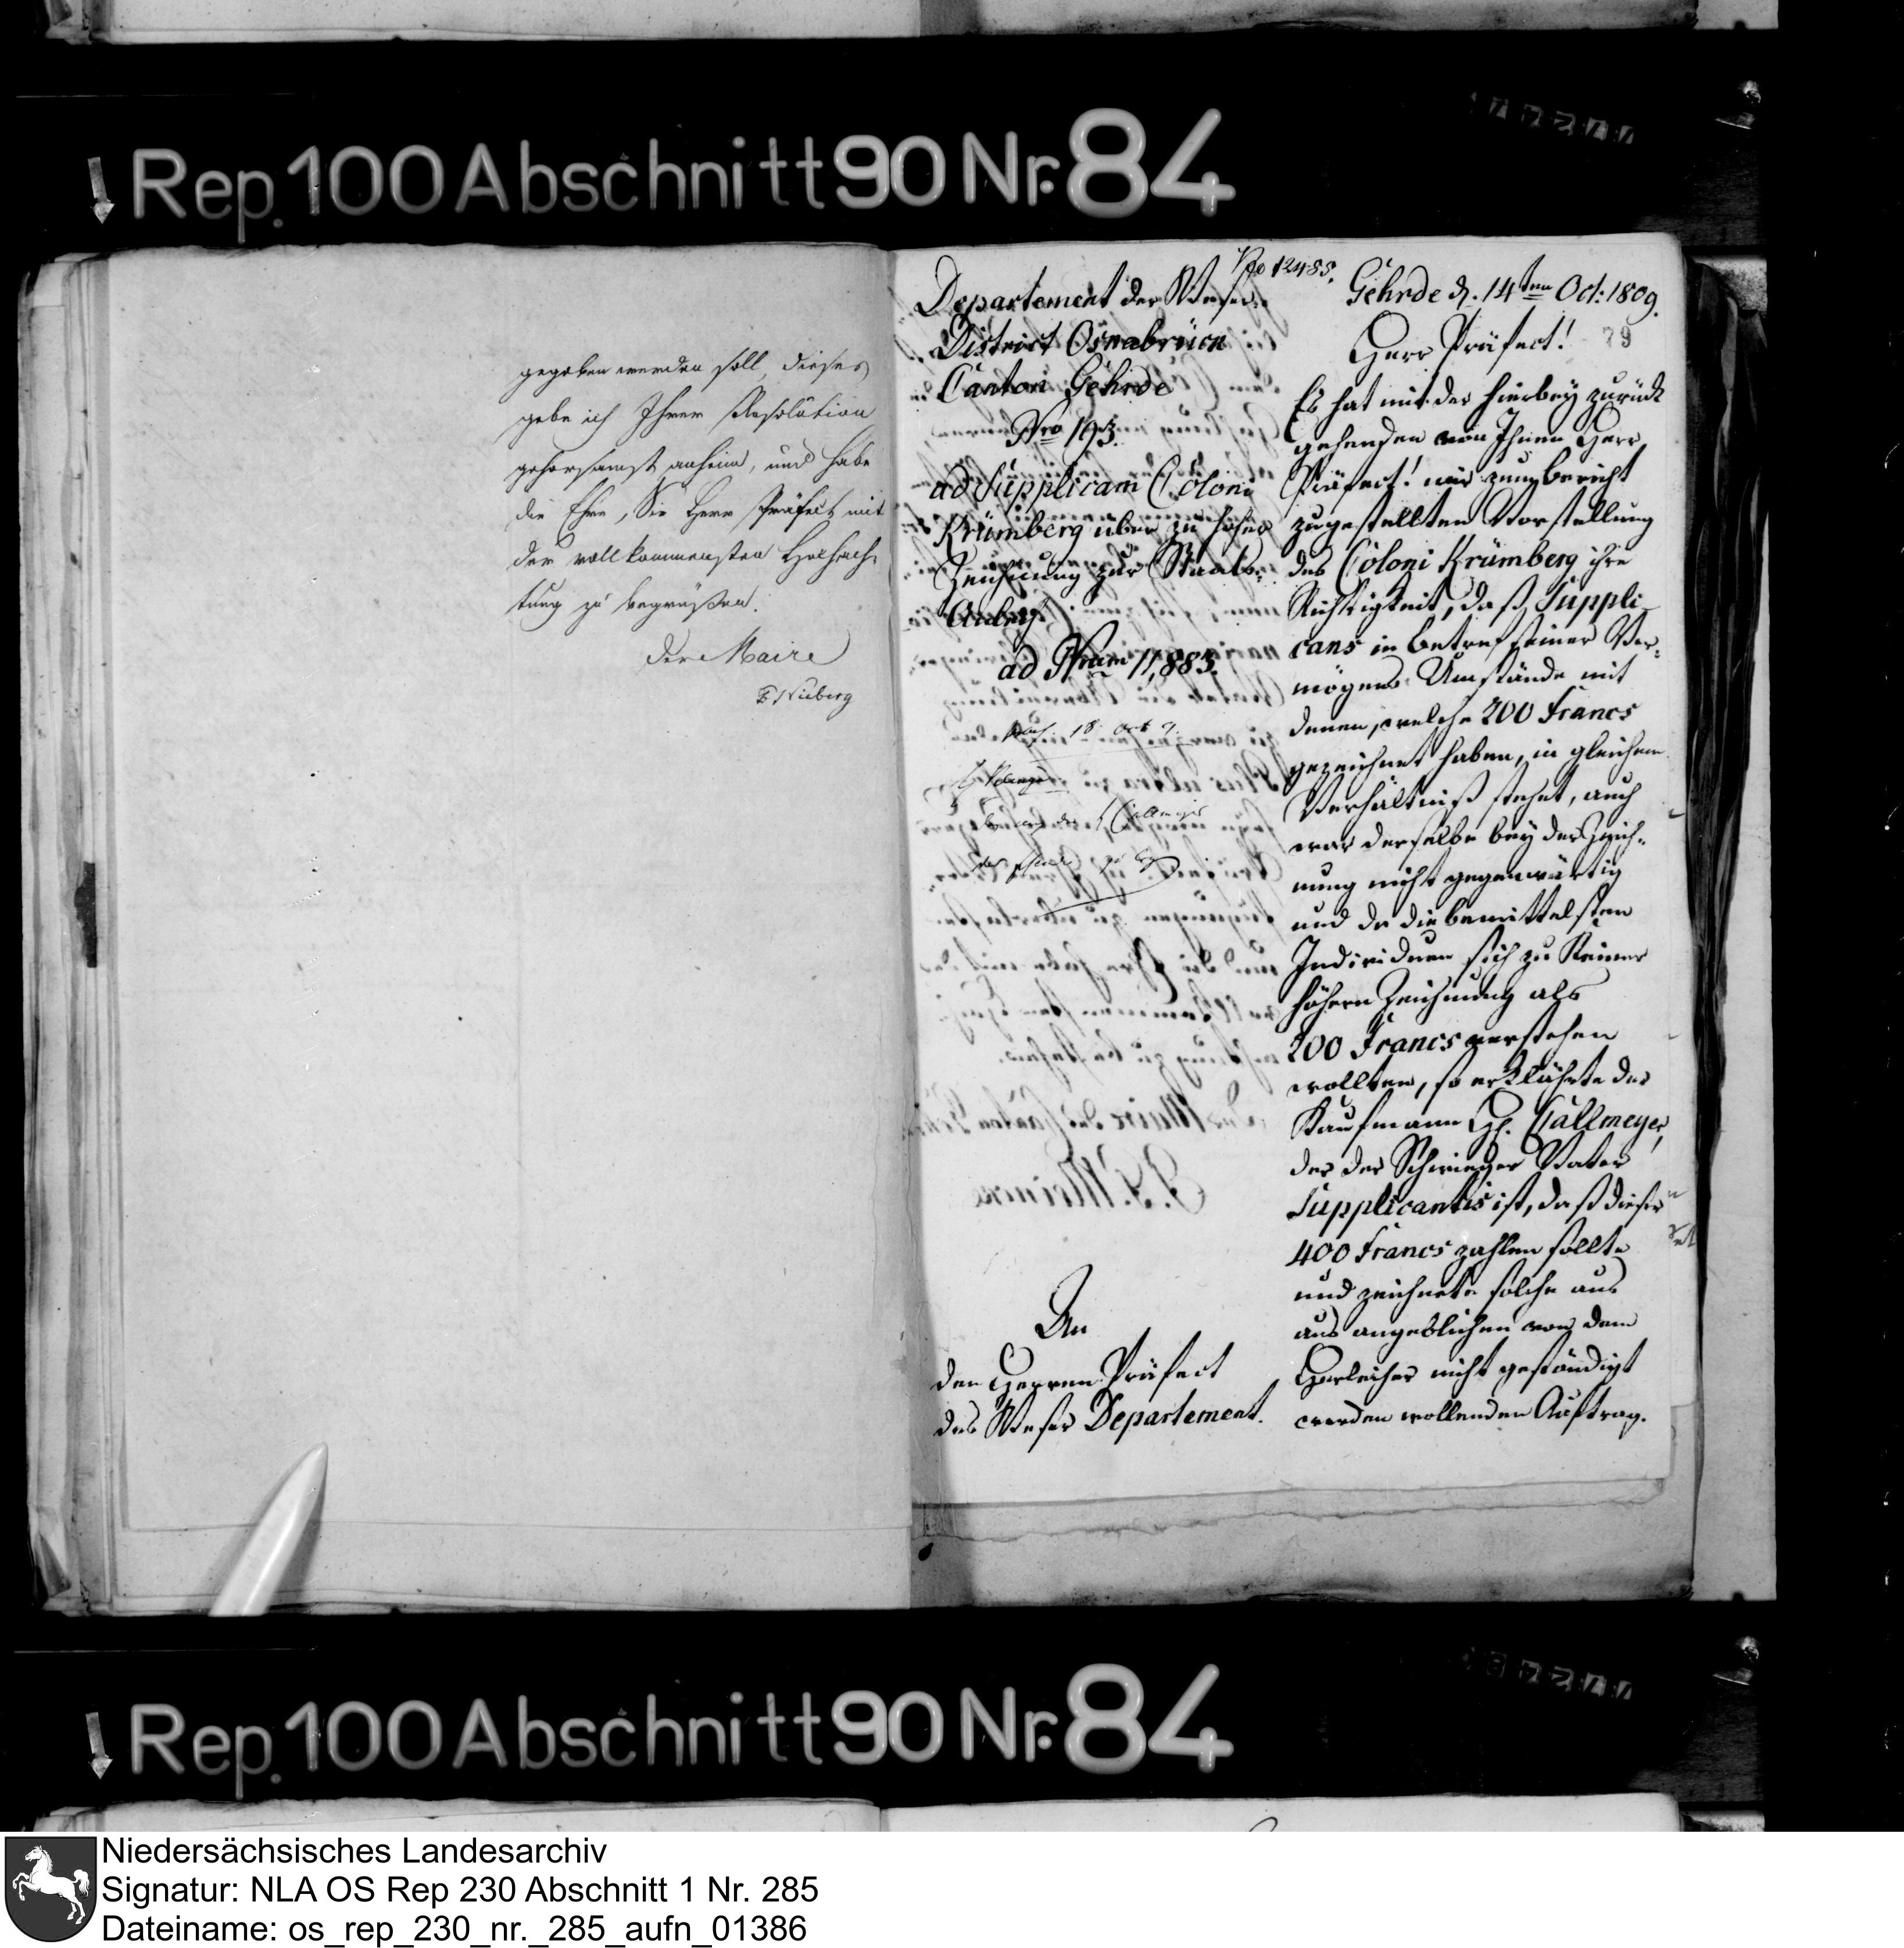 Rep. 100 Abschnitt 90 Nr. 84
gegeben werden soll, dieses
gebe ich Ihrer Resolution
gehorsamst anheim, und habe
die Ehre, Sie Herr Präfect mit
der vollkommensten Hochach-
tung zu begrüßen.
Der Maire
Nro 12488.
Departement der Weser
District Osnabrück
Canton Gehrde
Nro 193.
ad Supplicam Coloni
Krümberg über zu hoher
Zeichnung zur Staats-
Anleihe
ad Num 11,883.
18 Oct 9.
An
den Herren Präfect
des Weser Departement.
Gehrde d. 14ten Oct: 1809.
79
Herr Präfect!
Es hat mit der hierbey zurück
gehenden von Ihnen Herr
Präfect! mir zum bericht
zugestellten Vorstellung
des Coloni Krümberg ihre
Richtigkeit, daß Suppli-
cans in betref seiner Ver-
mögens Umstände mit
denen, welche 200 Francs
gezeichnet haben, in gleichem
Verhältniß stehet, auch
war derselbe bey der Zeich-
nung nicht gegenwärtig
und da die bemittelsten
Individuen sich zu keiner
höhern Zeichnung als
200 Francs verstehen
wollten, so erklährte der
Kaufmann H. Callmeyer,
der der Schwieger Vater
Supplicantis ist, daß dieser
400 Francs zahlen sollte
und zeichnete solche aus
aus angeblichen von dem
nicht geständigt
werden wollenden Auftrag.
Rep. 100 Abschnitt 90 Nr. 84
Niedersächsisches Landesarchiv
Signatur: NLA OS Rep 230 Abschnitt 1 Nr. 285
Dateiname: os_rep_230_nr._285_aufn_01386